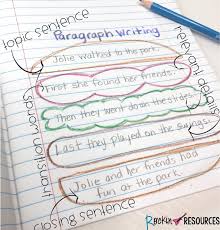 topic sentence
Paragraph Writing
Jolie walked to the park.
First she found her friends.
Then they went down the slides.
Last they played on the swings.
Jolie and her friends had
fun at the park.
transition words
relevant details
closing sentence
Rockin RESOURCES